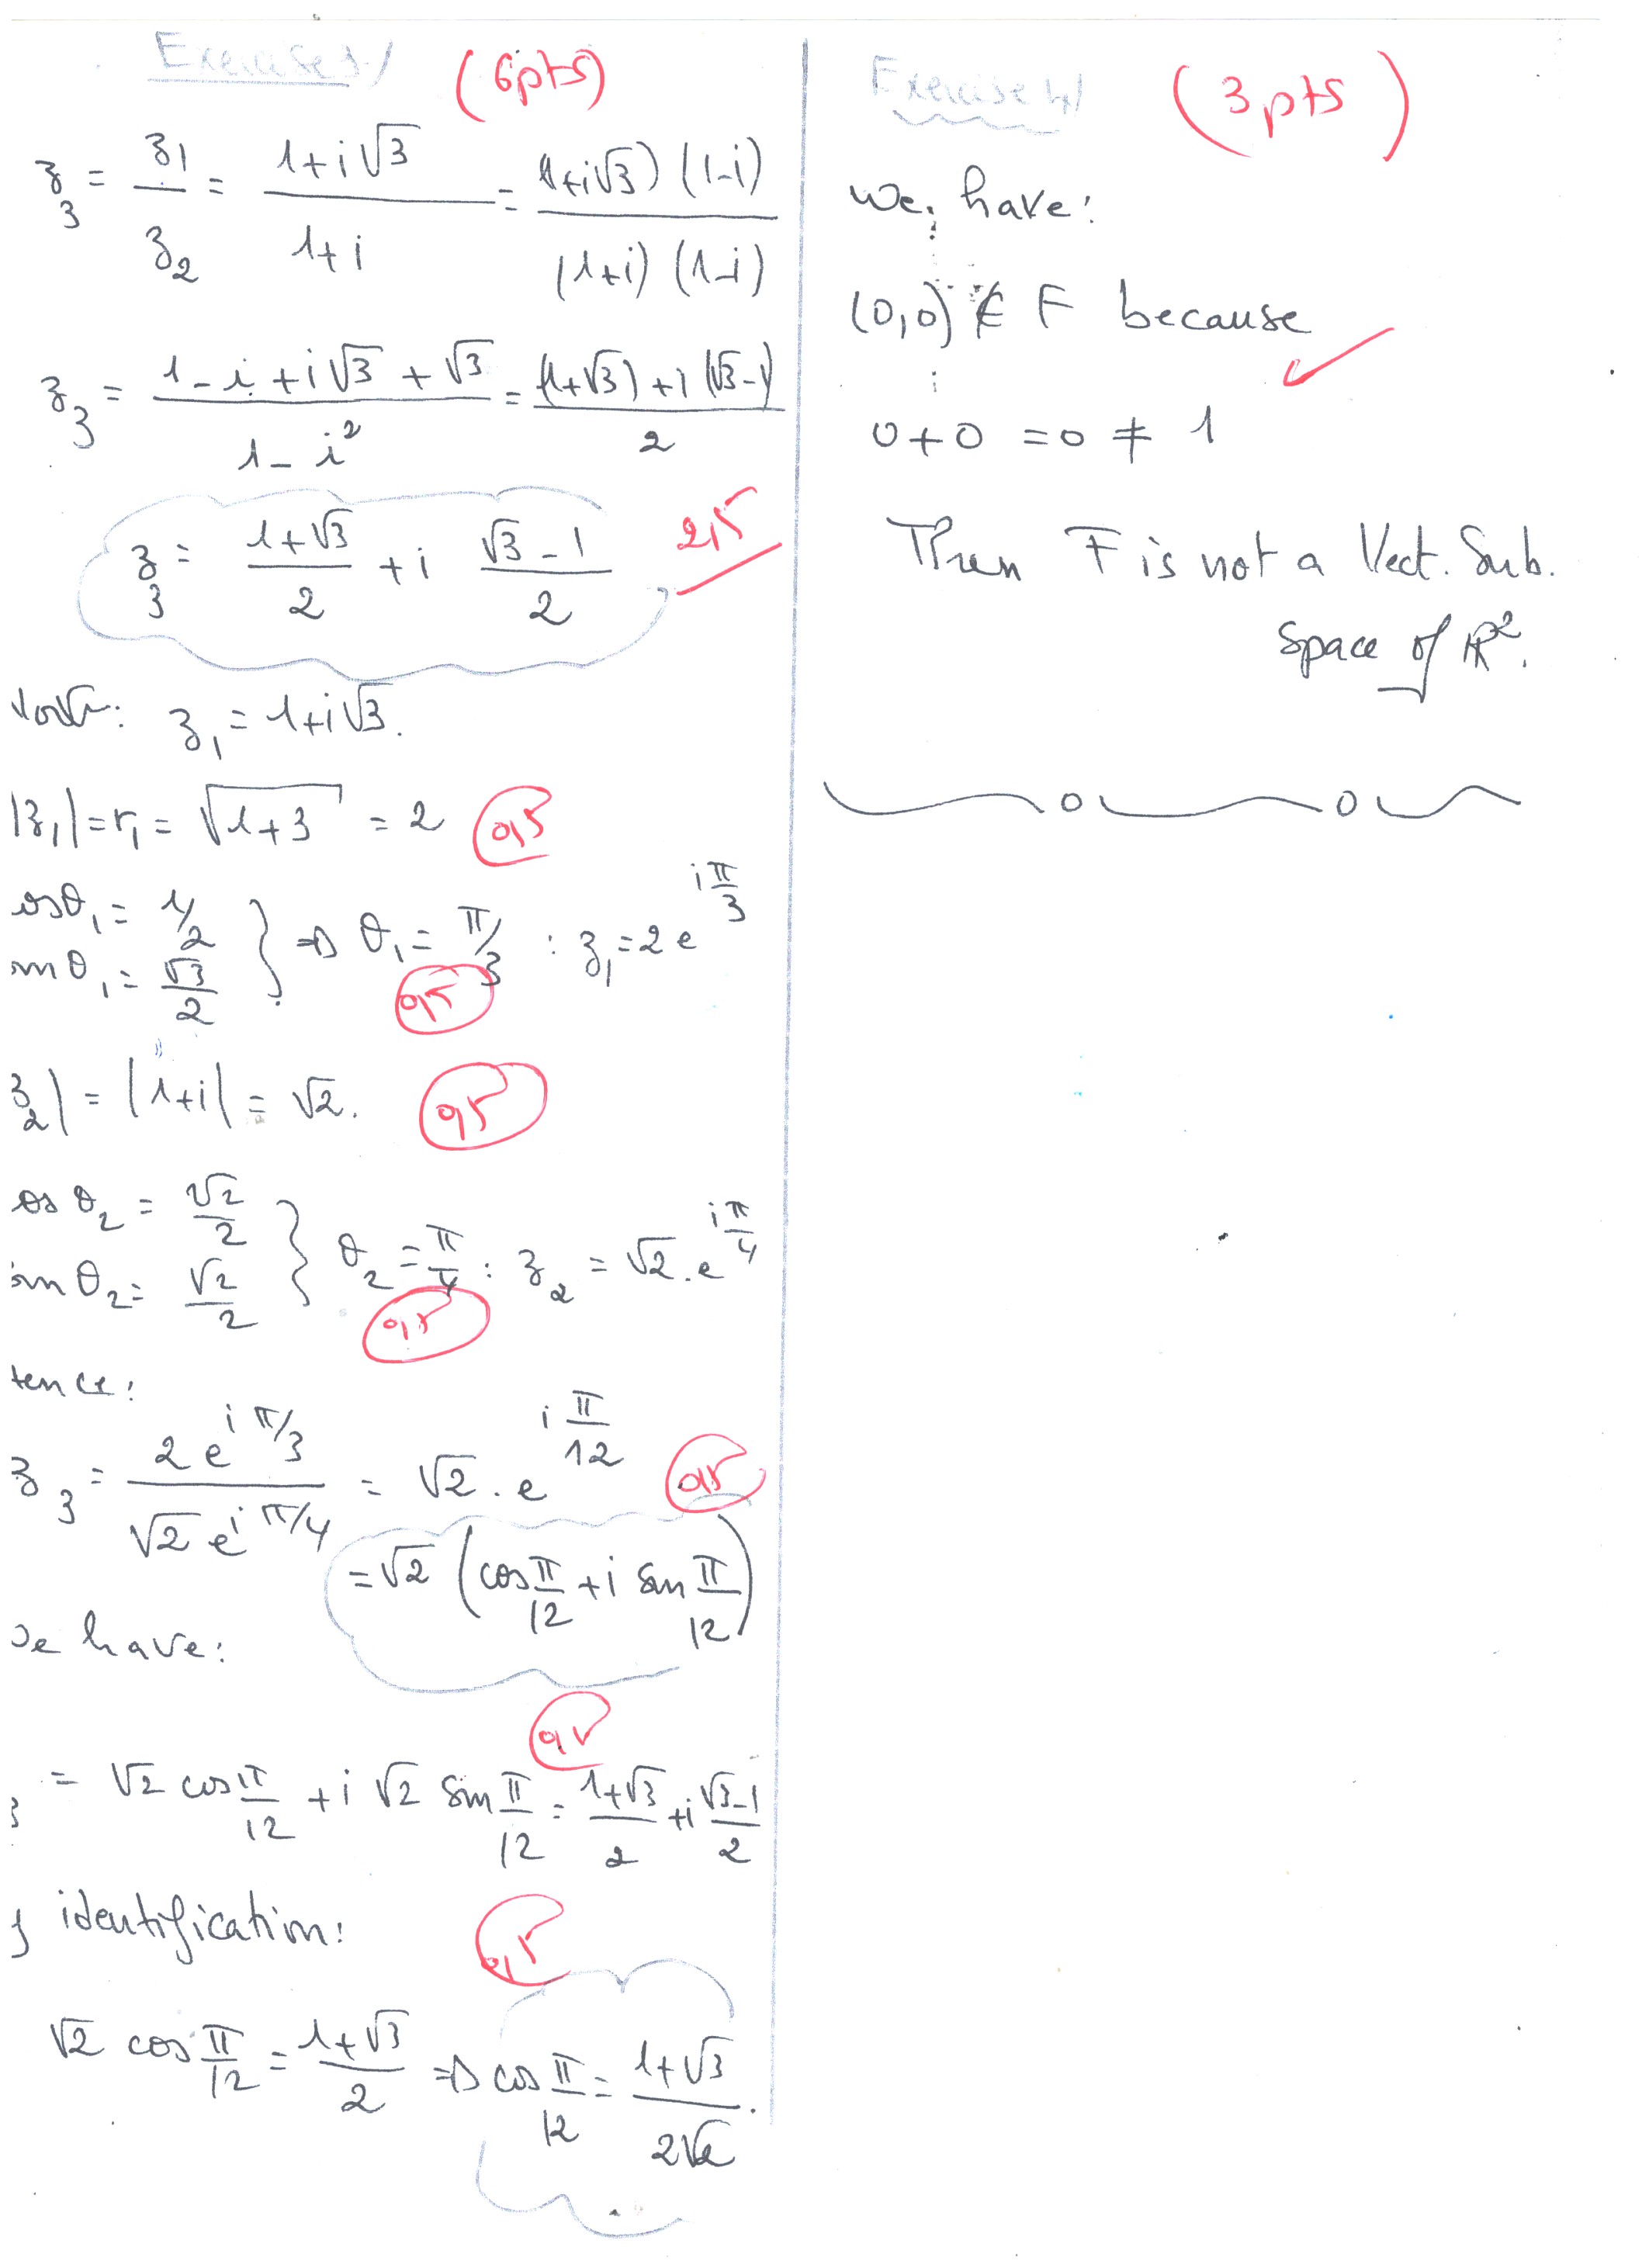 Exercise 3/ (6pts)
z₃ = z₁/z₂ = (1+i√3)/(1+i) = (1+i√3)(1-i)/(1+i)(1-i)
z₃ = (1-i+i√3+√3)/(1-i²) = ((1+√3)+i(√3-1))/2
z₃ = (1+√3)/2 + i (√3-1)/2 2,5
z₁ = 1+i√3.
|z₁| = r₁ = √(1+3) = 2 0,5
cosθ₁ = 1/2
sinθ₁ = √3/2 } => θ₁ = π/3 : z₁ = 2e^(iπ/3)
0,5
z₂| = |1+i| = √2. 0,5
cosθ₂ = √2/2
sinθ₂ = √2/2 } θ₂ = π/4 : z₂ = √2.e^(iπ/4)
0,5
ence:
z₃ = 2e^(iπ/3)/√2e^(iπ/4) = √2.e^(iπ/12) 0,5
= √2 (cos π/12 + i sin π/12)
e have:
0,5
₃ = √2 cos π/12 + i √2 sin π/12 = (1+√3)/2 + i (√3-1)/2
identification:
0,5
√2 cos π/12 = (1+√3)/2 => cos π/12 = (1+√3)/2√2.
Exercise 4/ (3pts)
we have:
(0,0) ∉ F because
0+0 = 0 ≠ 1
Then F is not a Vect. Sub.
Space of ℝ².